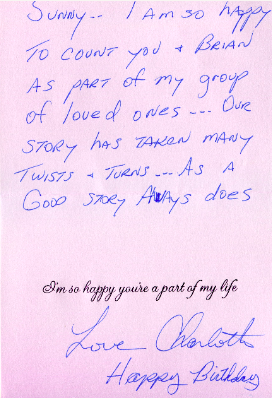 Sunny-- I Am so happy
To count you + Brian
As part of my group
of loved ones --- Our
story has taken many
Twists + Turns --- As a
Good story Always does
I'm so happy you're a part of my life
Love Charlotte
Happy Birthday